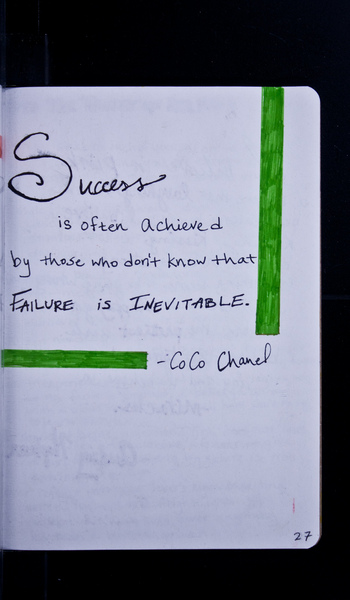 Success
is often achieved
by those who don't know that
FAILURE is INEVITABLE.
-CoCo Chanel
27